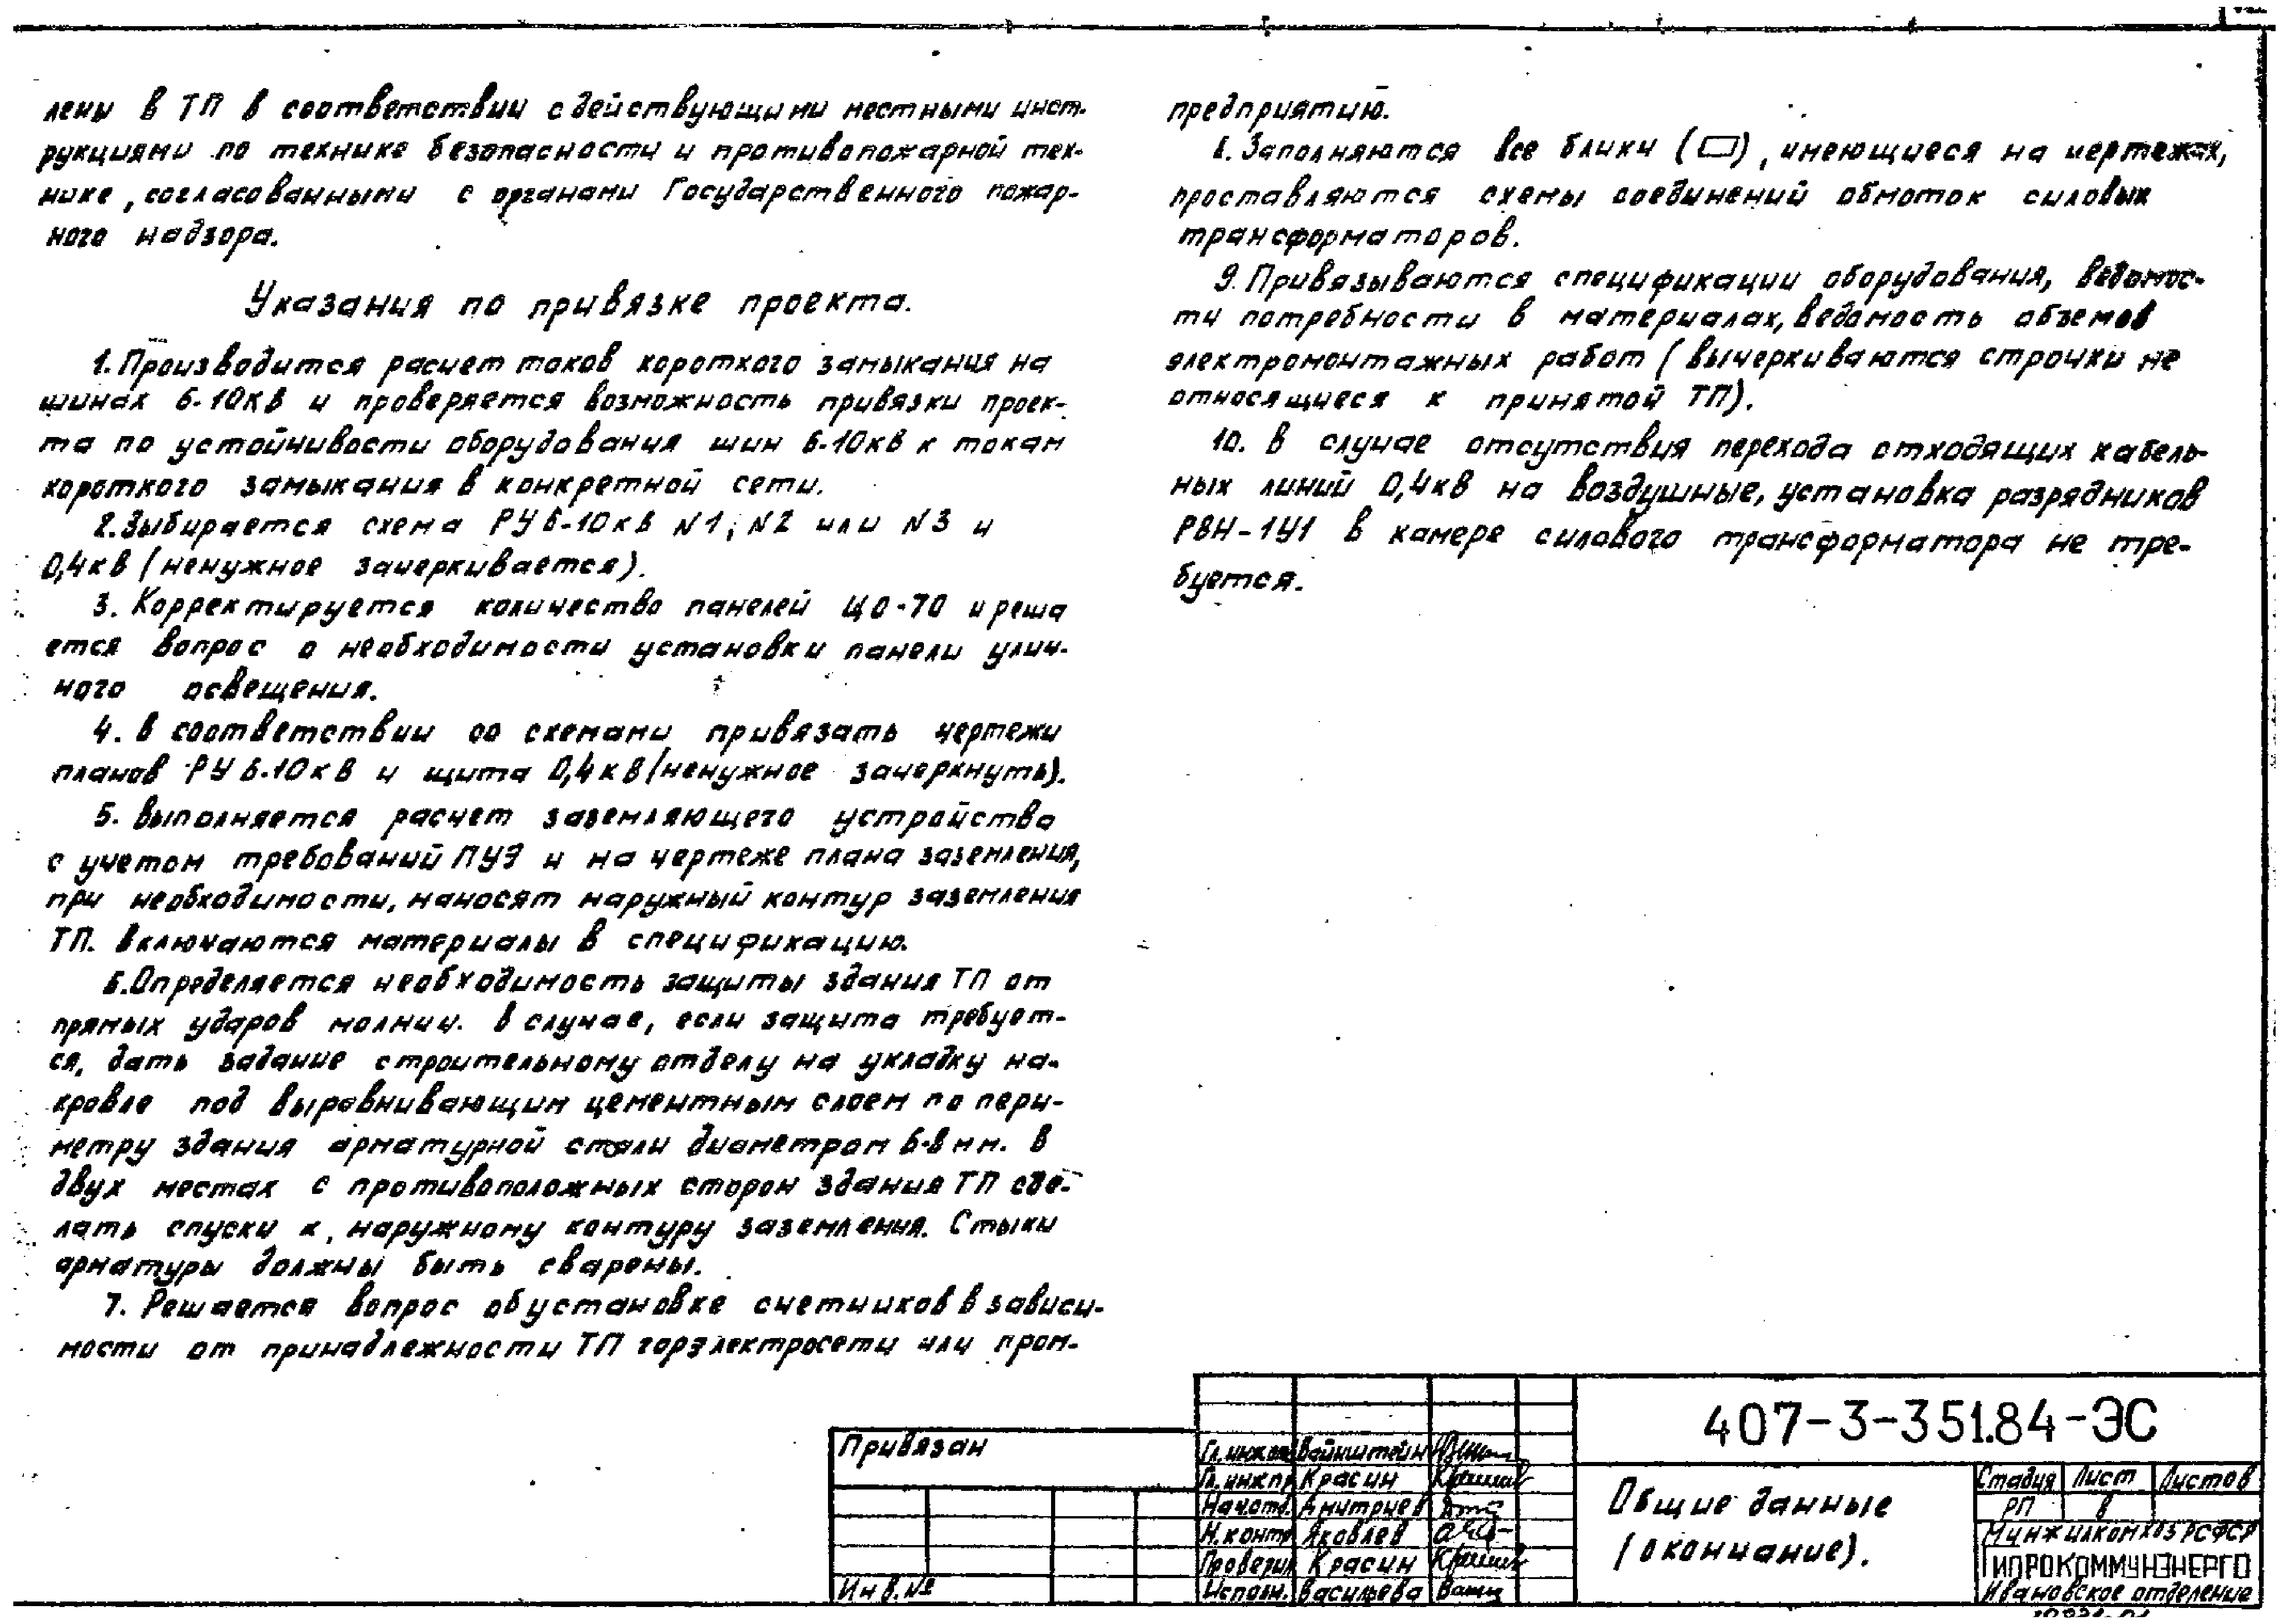 лены в ТП в соответствии с действующими местными инст-
рукциями по технике безопасности и противопожарной тех-
нике, согласованными с органами Государственного пожар-
ного надзора.
Указания по привязке проекта.
1. Производится расчет токов короткого замыкания на
шинах 6-10кВ и проверяется возможность привязки проек-
та по устойчивости оборудования шин 6-10кВ к токам
короткого замыкания в конкретной сети.
2. Выбирается схема РУ 6-10кВ N1; N2 или N3 и
0,4кВ (ненужное зачеркивается).
3. Корректируется количество панелей ЩО-70 и реша
ется вопрос о необходимости установки панели улич-
ного освещения.
4. В соответствии со схемами привязать чертежи
планов РУ 6-10кВ и щита 0,4кВ (ненужное зачеркнуть).
5. Выполняется расчет заземляющего устройства
с учетом требований ПУЭ и на чертеже плана заземления,
при необходимости, наносят наружный контур заземления
ТП. Включаются материалы в спецификацию.
6. Определяется необходимость защиты здания ТП от
прямых ударов молнии. В случае, если защита требует-
ся, дать задание строительному отделу на укладку на-
кровле под выравнивающим цементным слоем по пери-
метру здания арматурной стали диаметром 6-8 мм. В
двух местах с противоположных сторон здания ТП сде-
лать спуски к наружному контуру заземления. Стыки
арматуры должны быть сварены.
7. Решается вопрос об установке счетчиков в зависи-
мости от принадлежности ТП горэлектросети или пром-
предприятию.
8. Заполняются все блики (▭), имеющиеся на чертежах,
проставляются схемы соединений обмоток силовых
трансформаторов.
9. Привязываются спецификации оборудования, ведомос-
ти потребности в материалах, ведомость объемов
электромонтажных работ (вычеркиваются строчки не
относящиеся к принятой ТП).
10. В случае отсутствия перехода отходящих кабель-
ных линий 0,4кВ на воздушные, установка разрядников
РВН-1У1 в камере силового трансформатора не тре-
буется.
Привязан
Инв. №
Гл.инж.отд Вайнштейн
Гл.инж.пр Красин
Нач.отд. Дмитриев
Н.контр. Яковлев
Проверил Красин
Исполн. Васильева
407-3-351.84-ЭС
Общие данные
(окончание).
Стадия Лист Листов
РП 8
Минжилкомхоз РСФСР
ГИПРОКОММУНЭНЕРГО
Ивановское отделение